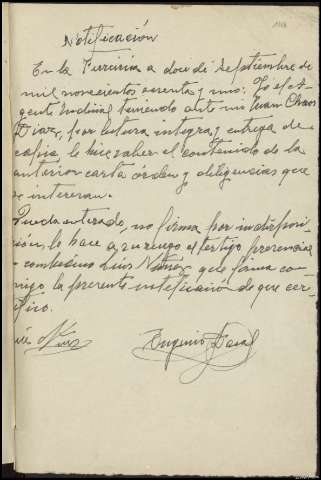 Notificación
En la Furriría a doce de Septiembre de
mil novecientos sesenta y uno: Yo el A-
gente Judicial teniendo ante mi Juan Chaos
Díaz, por lectura integra, y entrega de
copia le hice saber el contenido de la
anterior carta órden y diligencias que
se interesan.
Queda enterado, no firma por indisposi-
ción, lo hace a su ruego el testigo presencial
convecino Luis Núñez que firma con-
migo la presente notificación de que cer-
tifico.
Luis Núñez
Eugenio